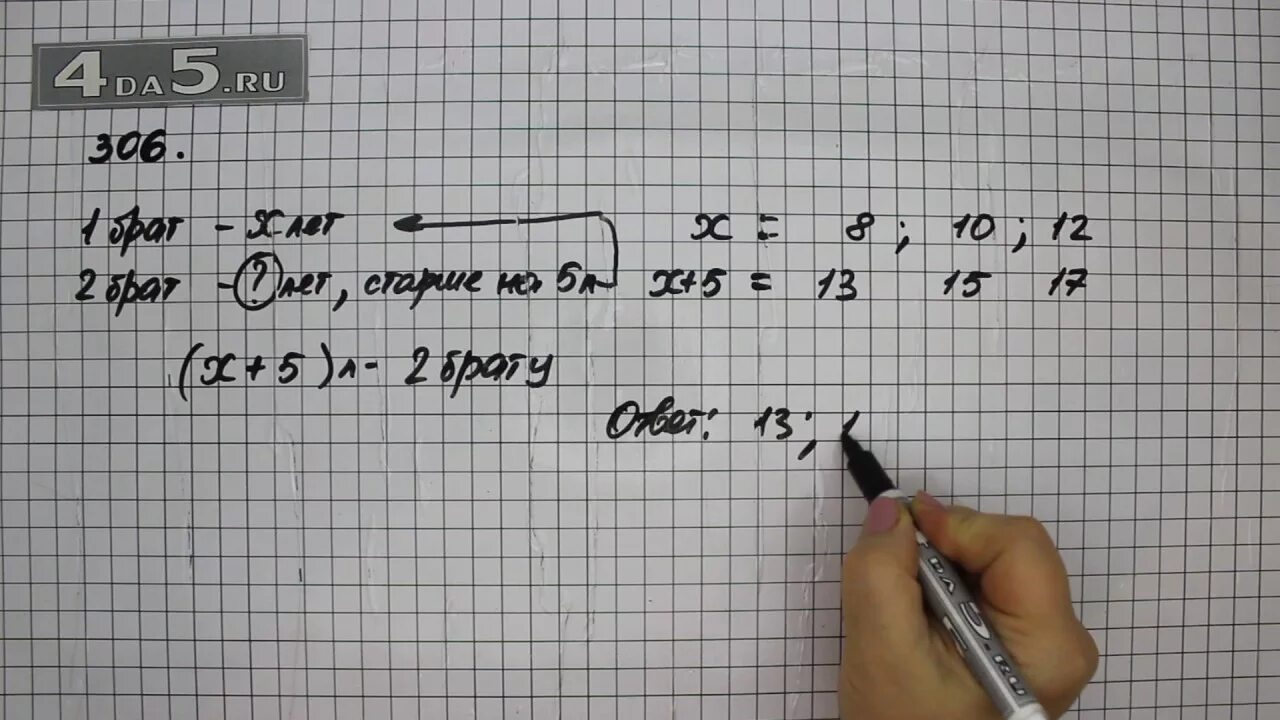 4DA5.RU
306.
1 брат - x лет
2 брат - ? лет, старше на 5 л
(x + 5) л - 2 брату
x = 8 ; 10 ; 12
x+5 = 13 15 17
Ответ: 13 ; 1
DA 5.RU